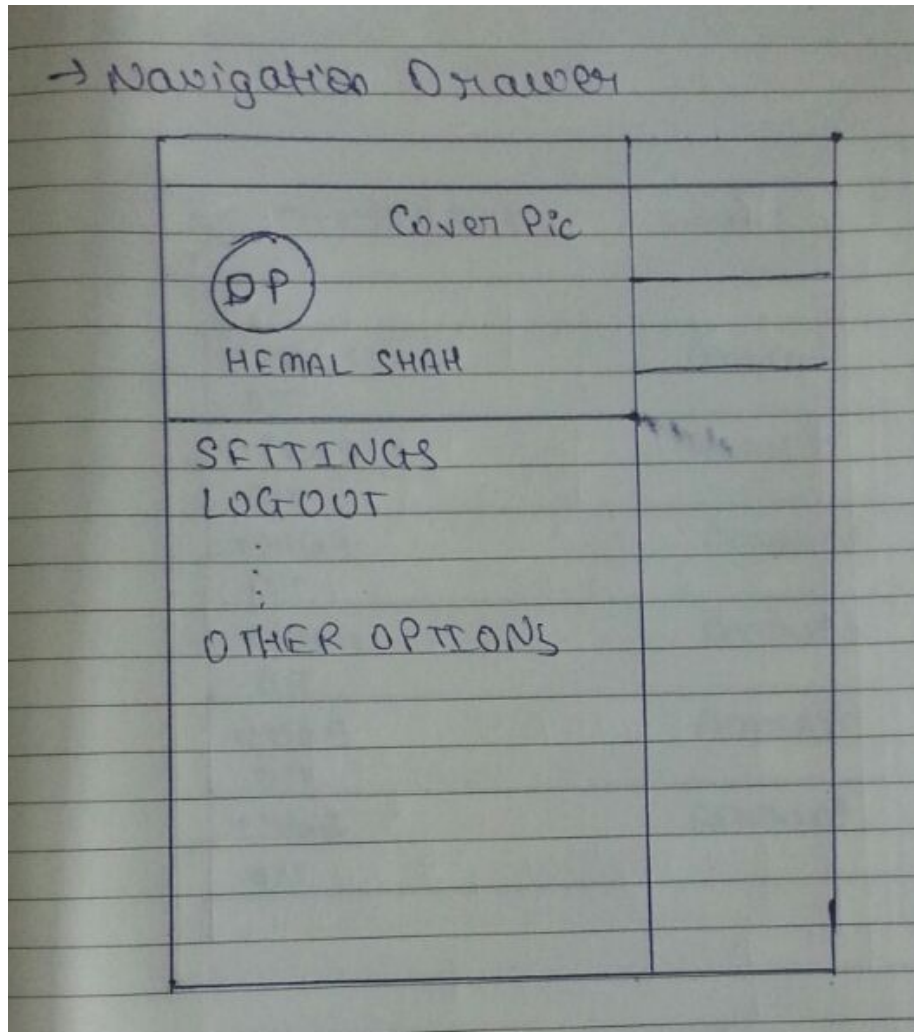 → Navigation Drawer
Cover Pic
DP
HEMAL SHAH
SETTINGS
LOGOUT
OTHER OPTIONS